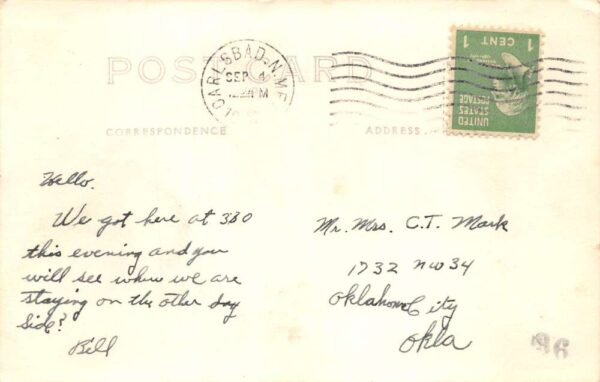 POST CARD
CARLSBAD. N.MEX
SEP 4
M
1 CENT 1
UNITED
STATES
POSTAGE
CORRESPONDENCE
ADDRESS
Hello.
We got here at 330
this evening and you
will see where we are
staying on the other
side?
Bill
Mr. Mrs. C.T. Mark
1732 NW 34
Oklahoma City
Okla
96